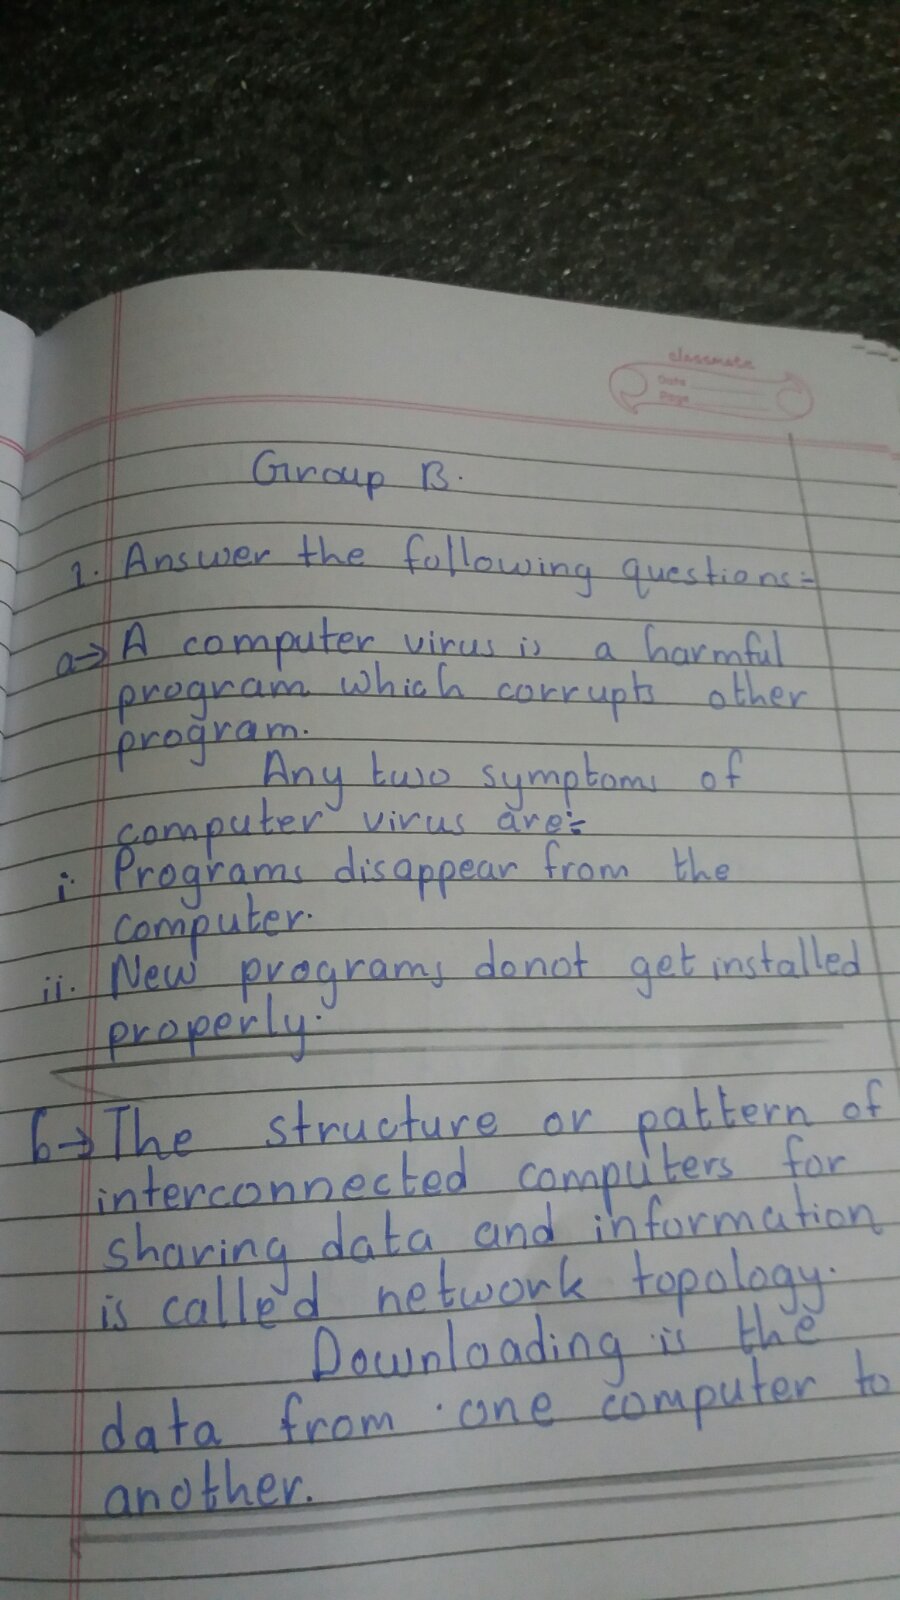 classmate
Date
Page
Group B.
1. Answer the following questions:-
a→ A computer virus is a harmful
program which corrupts other
program.
Any two symptoms of
computer virus are:-
i. Programs disappear from the
computer.
ii. New programs donot get installed
properly.
b→ The structure or pattern of
interconnected computers for
sharing data and information
is called network topology.
Downloading is the
data from one computer to
another.